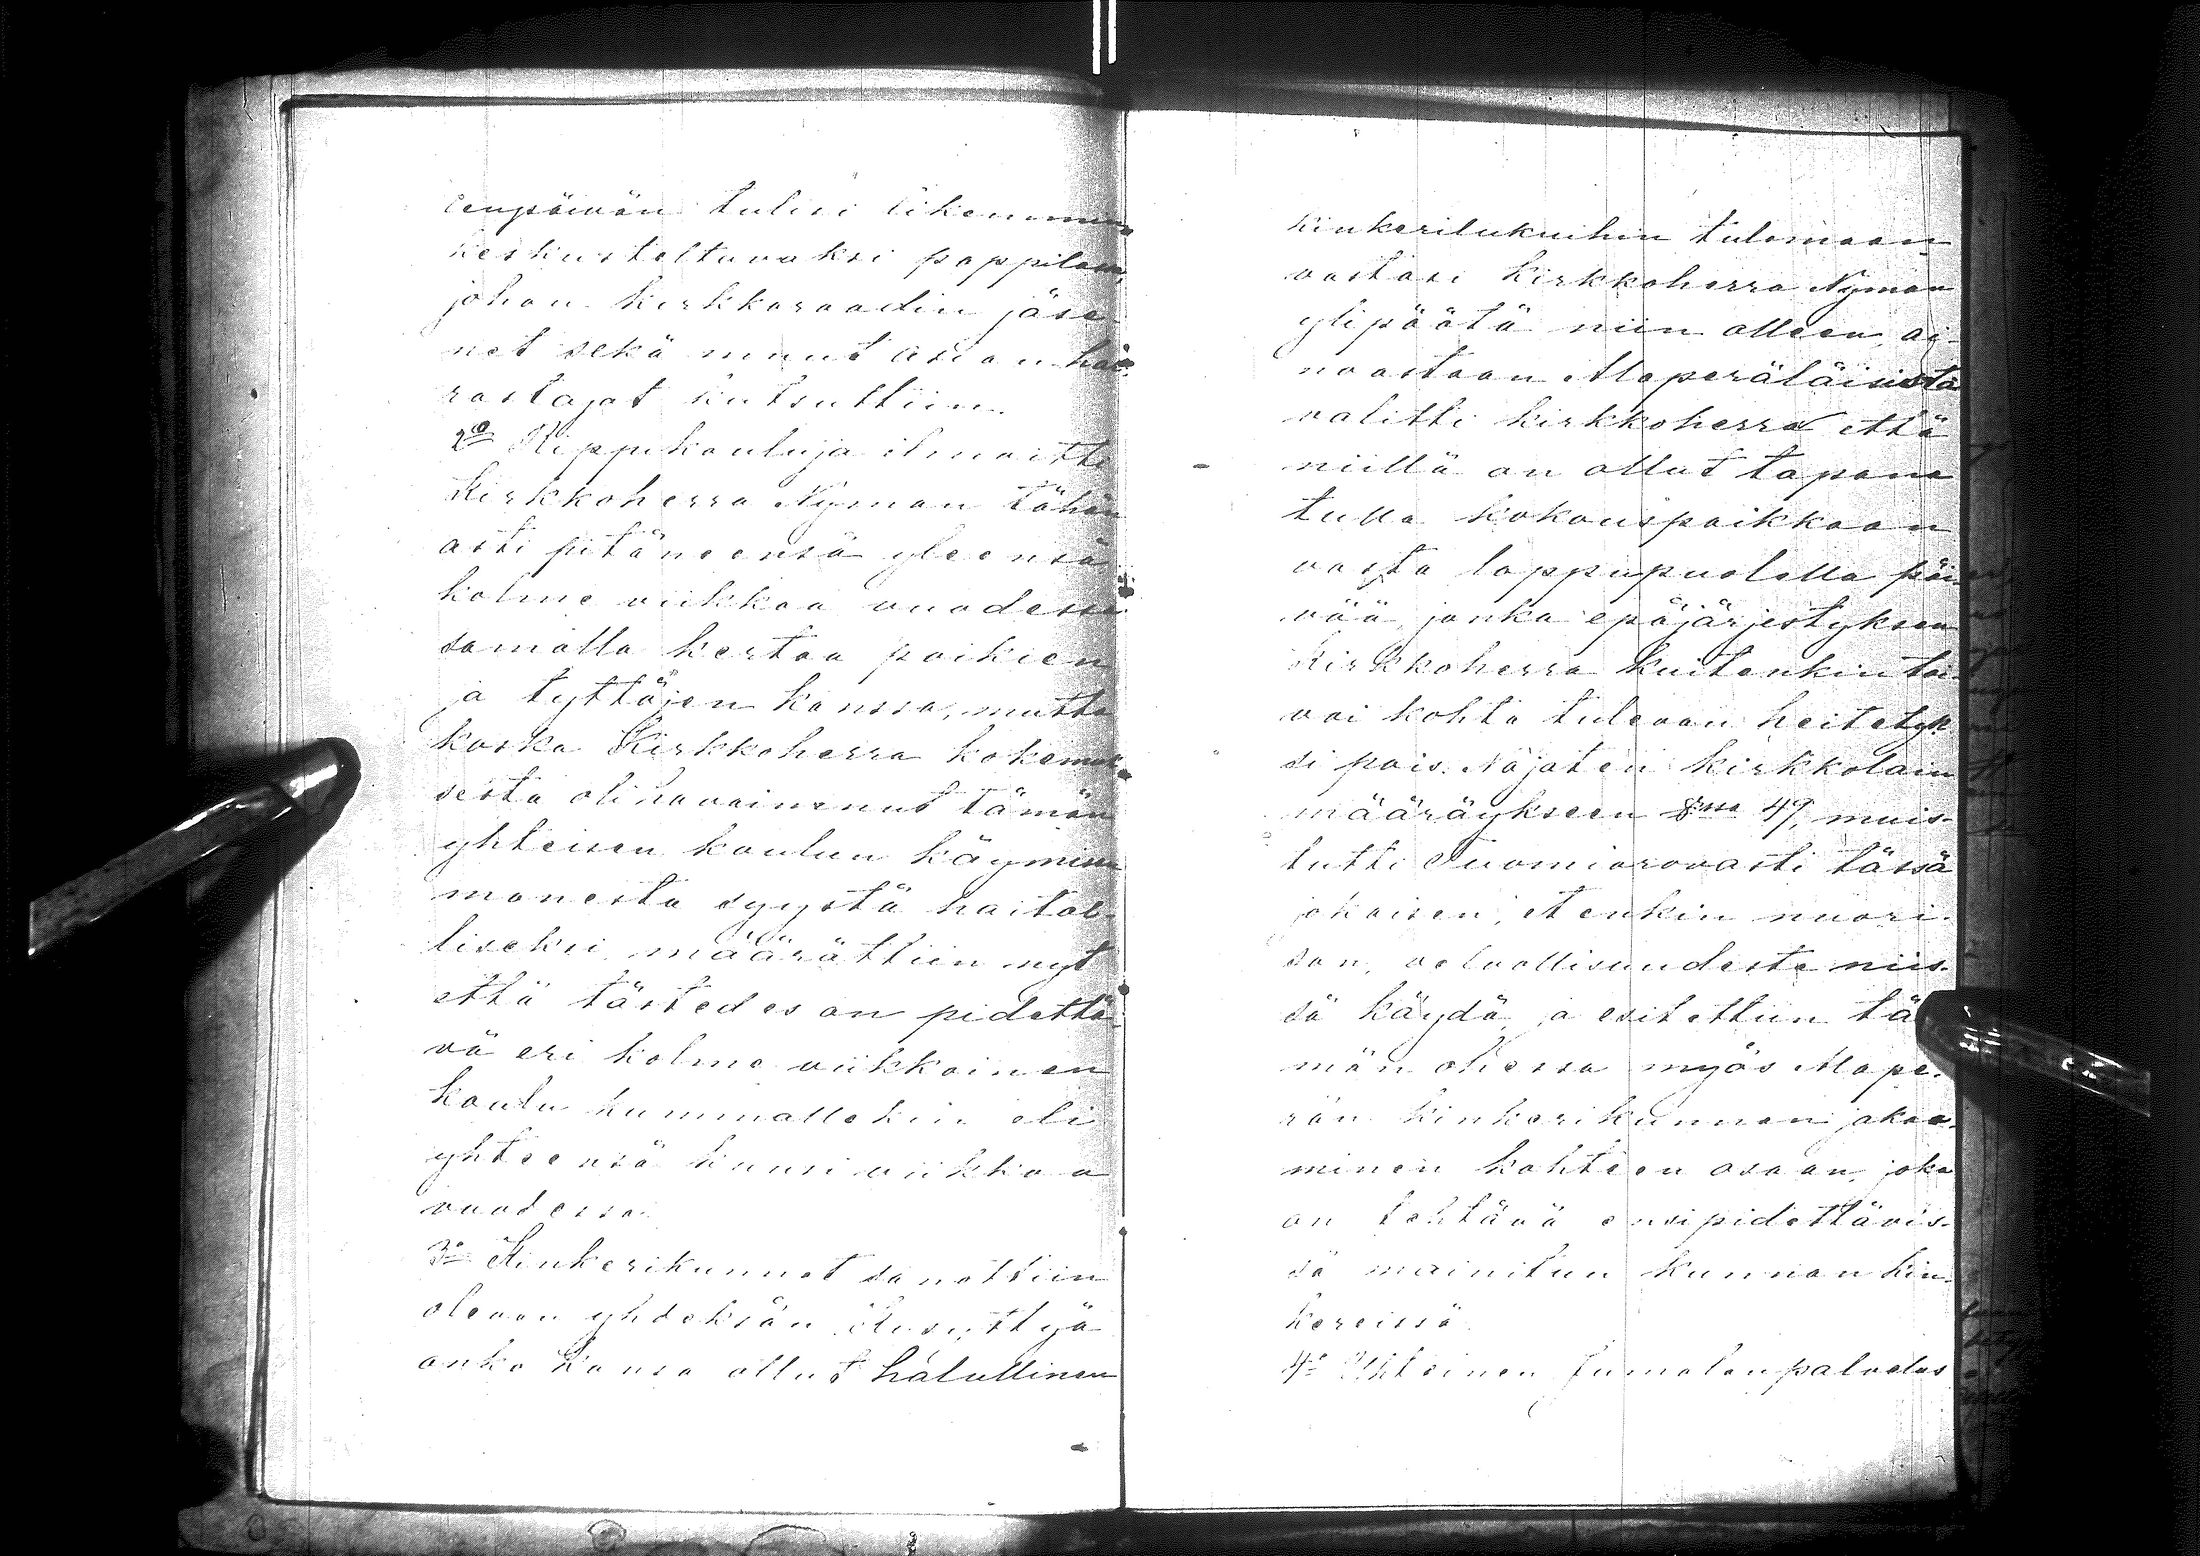 eenpäivän tulisi likemmin
keskusteltavaksi pappilaan,
johon kirkkoraadin jäse-
net sekä muut asian har-
rastajat kutsuttiin.
2o Rippikouluja ilmoitti
Kirkkoherra Nyman tähän
asti pitäneensä yleensä
kolme viikkoa vuodessa
samalla kertaa poikien
ja tyttöjen kanssa, mutta
koska Kirkkoherra kokemuk-
sesta oli havainnut tämän
yhteisen koulun käymisen
monesta syystä haital-
liseksi, määrättiin nyt
että tästedes on pidettä-
vä eri kolme viikkoinen
koulu kummallekin eli
yhteensä kuusi viikkoa
vuodessa.
3o Kinkerikunnat sanottiin
olevan yhdeksän. Kysyttyä
onko kansa ollut halullinen
kinkerilukuihin tulemaan
vastasi Kirkkoherra Nyman
ylipäätä niin olleen, ai-
noastaan Alaperäläisistä
valitti kirkkoherra että
niillä on ollut tapana
tulla kokouspaikkaan
vasta loppupuolella päi-
vää, jonka epäjärjestyksen
Kirkkoherra kuitenkin toi-
voi kohta tulevan heitetyk-
si pois. Nojaten kirkkolain
määräykseen §ssa 49, muis-
tutti Tuomiorovasti tässä
jokaisen, etenkin nuori-
son, velvollisuudesta niis-
sä käydä, ja esitettiin tä-
män ohessa myös Alape-
rän kinkerikunnan jakaa-
minen kahteen osaan, joka
on tehtävä ensi pidettävis-
sä mainitun kunnan kin-
kereissä.
4o Yhteinen Jumalanpalvelus